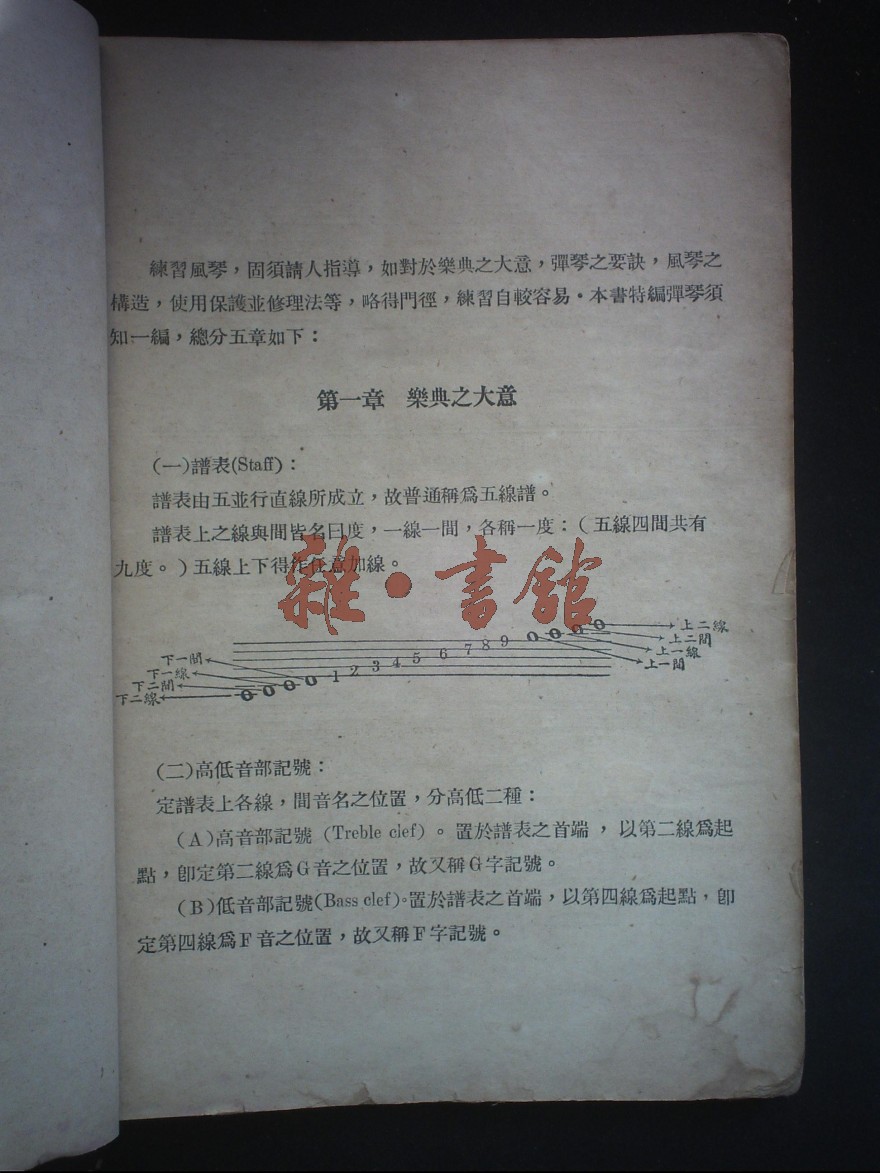 練習風琴，固須請人指導，如對於樂典之大意，彈琴之要訣，風琴之
構造，使用保護並修理法等，略得門徑，練習自較容易．本書特編彈琴須
知一編，總分五章如下：
第一章　樂典之大意
(一)譜表(Staff)：
譜表由五並行直線所成立，故普通稱爲五線譜。
譜表上之線與間皆名曰度，一線一間，各稱一度：(五線四間共有
九度。)五線上下得作任意加線。
雜·書館
上二線
上二間
上一線
上一間
1 2 3 4 5 6 7 8 9
下一間
下一線
下二間
下二線
(二)高低音部記號：
定譜表上各線，間音名之位置，分高低二種：
(A)高音部記號 (Treble clef)。置於譜表之首端，以第二線爲起
點，卽定第二線爲G音之位置，故又稱G字記號。
(B)低音部記號(Bass clef)。置於譜表之首端，以第四線爲起點，卽
定第四線爲F音之位置，故又稱F字記號。